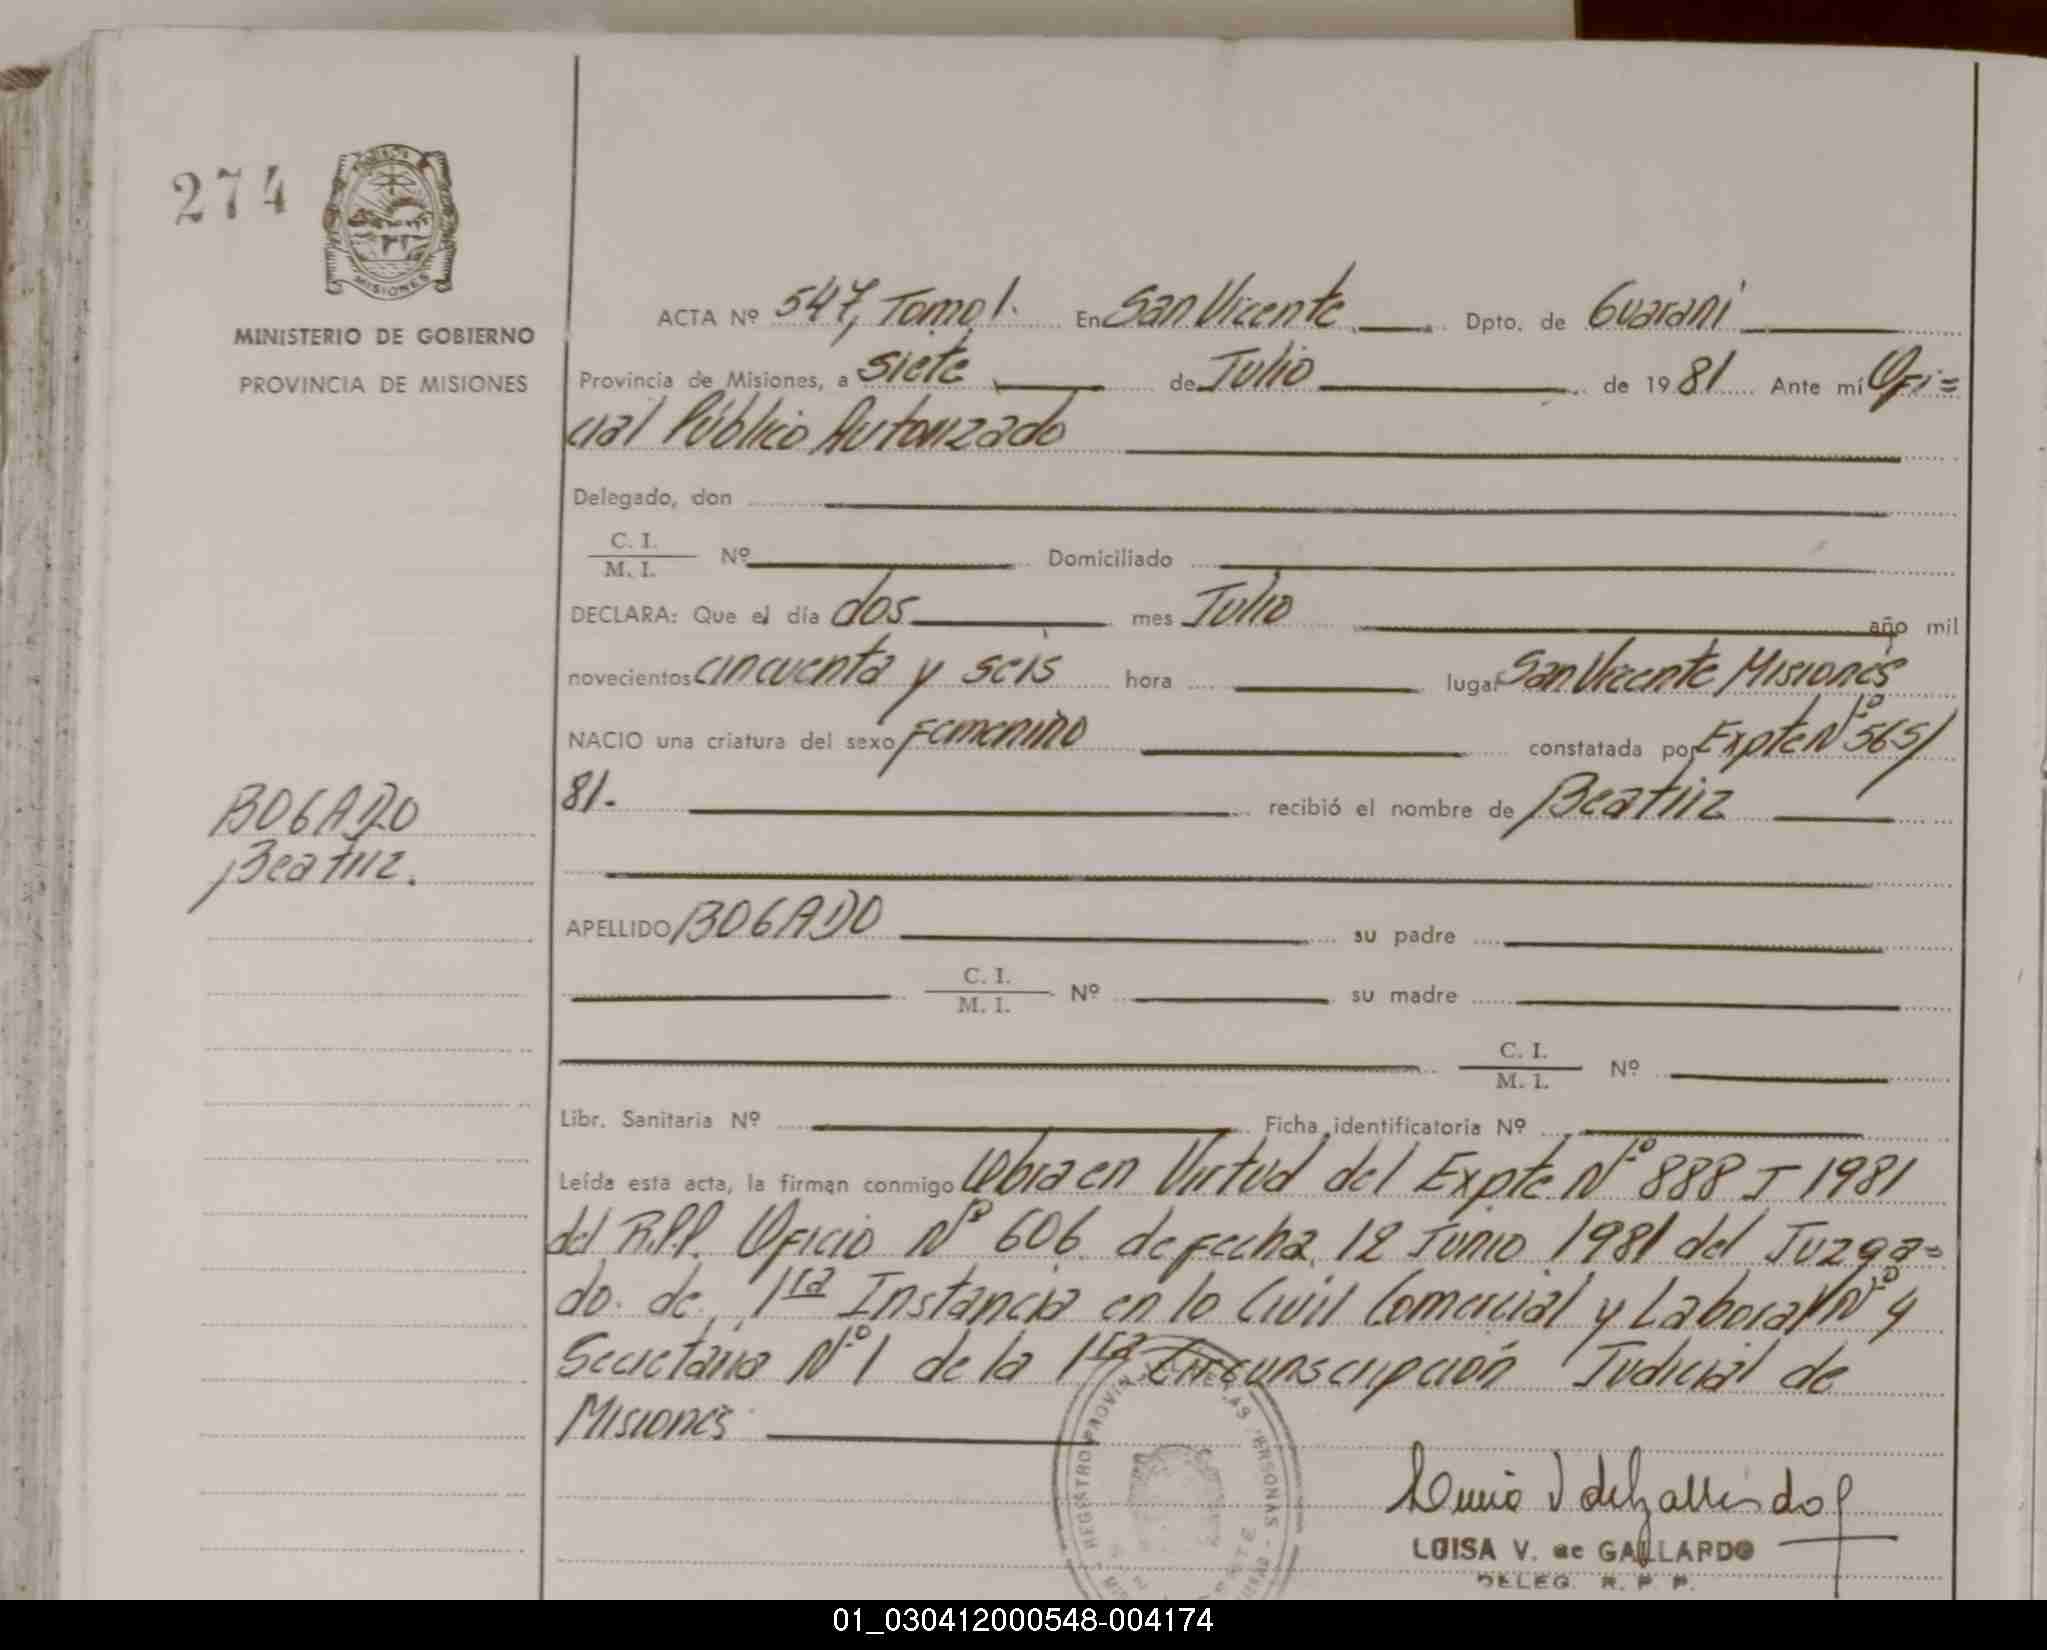 274
MISIONES
MINISTERIO DE GOBIERNO
PROVINCIA DE MISIONES
ACTA Nº 547, Tomo I. En San Vicente Dpto. de Guaraní
Provincia de Misiones, a siete de Julio de 1981 Ante mí Ofi=
cial Público Autorizado
Delegado, don
C. I.
M. I.
Nº Domiciliado
DECLARA: Que el día dos mes Julio año mil
novecientos cincuenta y seis hora lugar San Vicente Misiones
NACIO una criatura del sexo Femenino constatada por Expte Nº 565/
81.- recibió el nombre de Beatriz
BOGADO
Beatriz.
APELLIDO BOGADO su padre
C. I.
M. I.
Nº su madre
C. I.
M. I.
Nº
Libr. Sanitaria Nº Ficha identificatoria Nº
Leída esta acta, la firman conmigo Labra en Virtud del Expte Nº 888 J 1981
del R.P.P. Oficio Nº 606 de fecha 12 Junio 1981 del Juzga=
do de 1ra Instancia en lo Civil Comercial y Laboral Nº 4
Secretaria Nº 1 de la 1ra Circunscripción Judicial de
Misiones
REGISTRO PROVIN PERSONAS
LUISA V. de GALLARDO
DELEG. R. P. P.
01_030412000548-004174